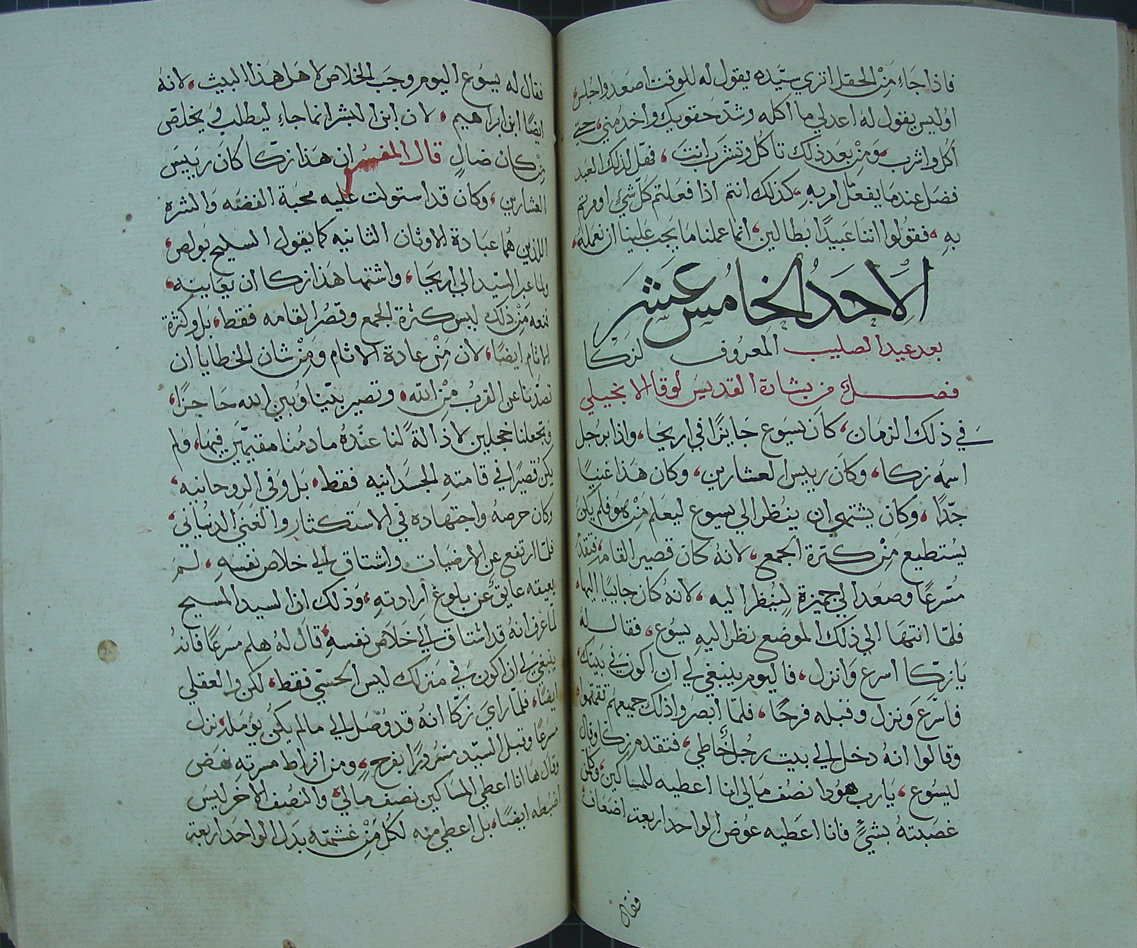 فاذا جاء من الحقل اترى سيده يقول له للوقت اصعد واجلس
اوليس يقول له اعد لي ما آكله وشد حقويك واخدمني حتى
آكل واشرب ومن بعد ذلك تاكل وتشرب انت، فهل لذلك العبد
فضل عندما يفعل ما امر به، كذلك انتم اذا فعلتم كل شي اومرتم
به، فقولوا اننا عبيدًا بطالين، انما عملنا ما يجب علينا ان نعمله،
الاحد الخامس عشر
بعد عيد الصليب المعروف لزكا
فصل من بشارة القديس لوقا الانجيلي
في ذلك الزمان، كان يسوع جايزًا في اريحا، واذا برجل
اسمه زكا، وكان رييس العشارين، وكان هذا غنيًا
جدًا، وكان يشتهي ان ينظر الى يسوع ليعلم من هو فلم يكن
يستطيع من كثرة الجمع، لانه كان قصير القامه، فتقدم
مسرعًا وصعد الى جميزة لينظر اليه، لانه كان جايبًا اليها،
فلما انتها الى ذلك الموضع نظر اليه يسوع، فقال له
يا زكا اسرع وانزل، فاليوم ينبغي لي ان اكون في بيتك،
فاسرع ونزل وقبله فرحًا، فلما ابصروا ذلك جميعهم تقمقموا
وقالوا انه دخل الى بيت رجل خاطي، فتقدم زكا وقال
ليسوع، يارب هوذا نصف مالي انا اعطيه للمساكين، وكل من
غصبته بشيءٍ فانا اعطيه عوض الواحد اربعة اضعاف،
فقال
فقال له يسوع اليوم وجب الخلاص لاهل هذا البيت، لانه
ايضًا ابن ابراهيم، لان ابن البشر انما جاء ليطلب ويخلص
من كان ضال قال المفسر ان هذا زكا كان رييس
العشارين، وكان قد استولت عليه محبة الفضة والشره
اللذين هما عبادة الاوثان الثانيه كما يقول السليح بولص،
ولما عبر السيد الى اريحا، واشتها هذا زكا ان يعاينه،
منعه من ذلك ليس كثرة الجمع وقصر القامه فقط، بل وكثرة
الاثام ايضًا، لان من عادة الاثام ومن شان الخطايا ان
تصدنا عن القرب من الله، وتصير بيننا وبين الله حاجزًا،
وتجعلنا خجلين لا دالة لنا عنده مادمنا مقيمين فيها، ولم
يكن قصيرًا في قامته الجسدانيه فقط، بل وفي الروحانيه،
وكان حرصه واجتهاده في الاستكثار والغنى الدنياني،
فلما ارتفع عن الارضيات واشتاق الى خلاص نفسه، لم
يعيقه عايق عن بلوغ ارادته، وذلك ان السيد المسيح
لما عرف انه قد اشتاق الى خلاص نفسه، قال له هلم مسرعًا فانه
ينبغي لي ان اكون في منزلك ليس الحسي فقط، لكن والعقلي
ايضًا، فلما راى زكا انه قد وصل الى مالم يكن يومله، نزل
مسرعًا وقبل السيد مسرورًا بفرحٍ، ومن افراط مسرته نهض
وقال ها انا اعطي المساكين نصف مالي، والنصف الاخر ليس
اضبطه ايضًا، بل اعطي منه لكل من غشمته بدل الواحد اربعة